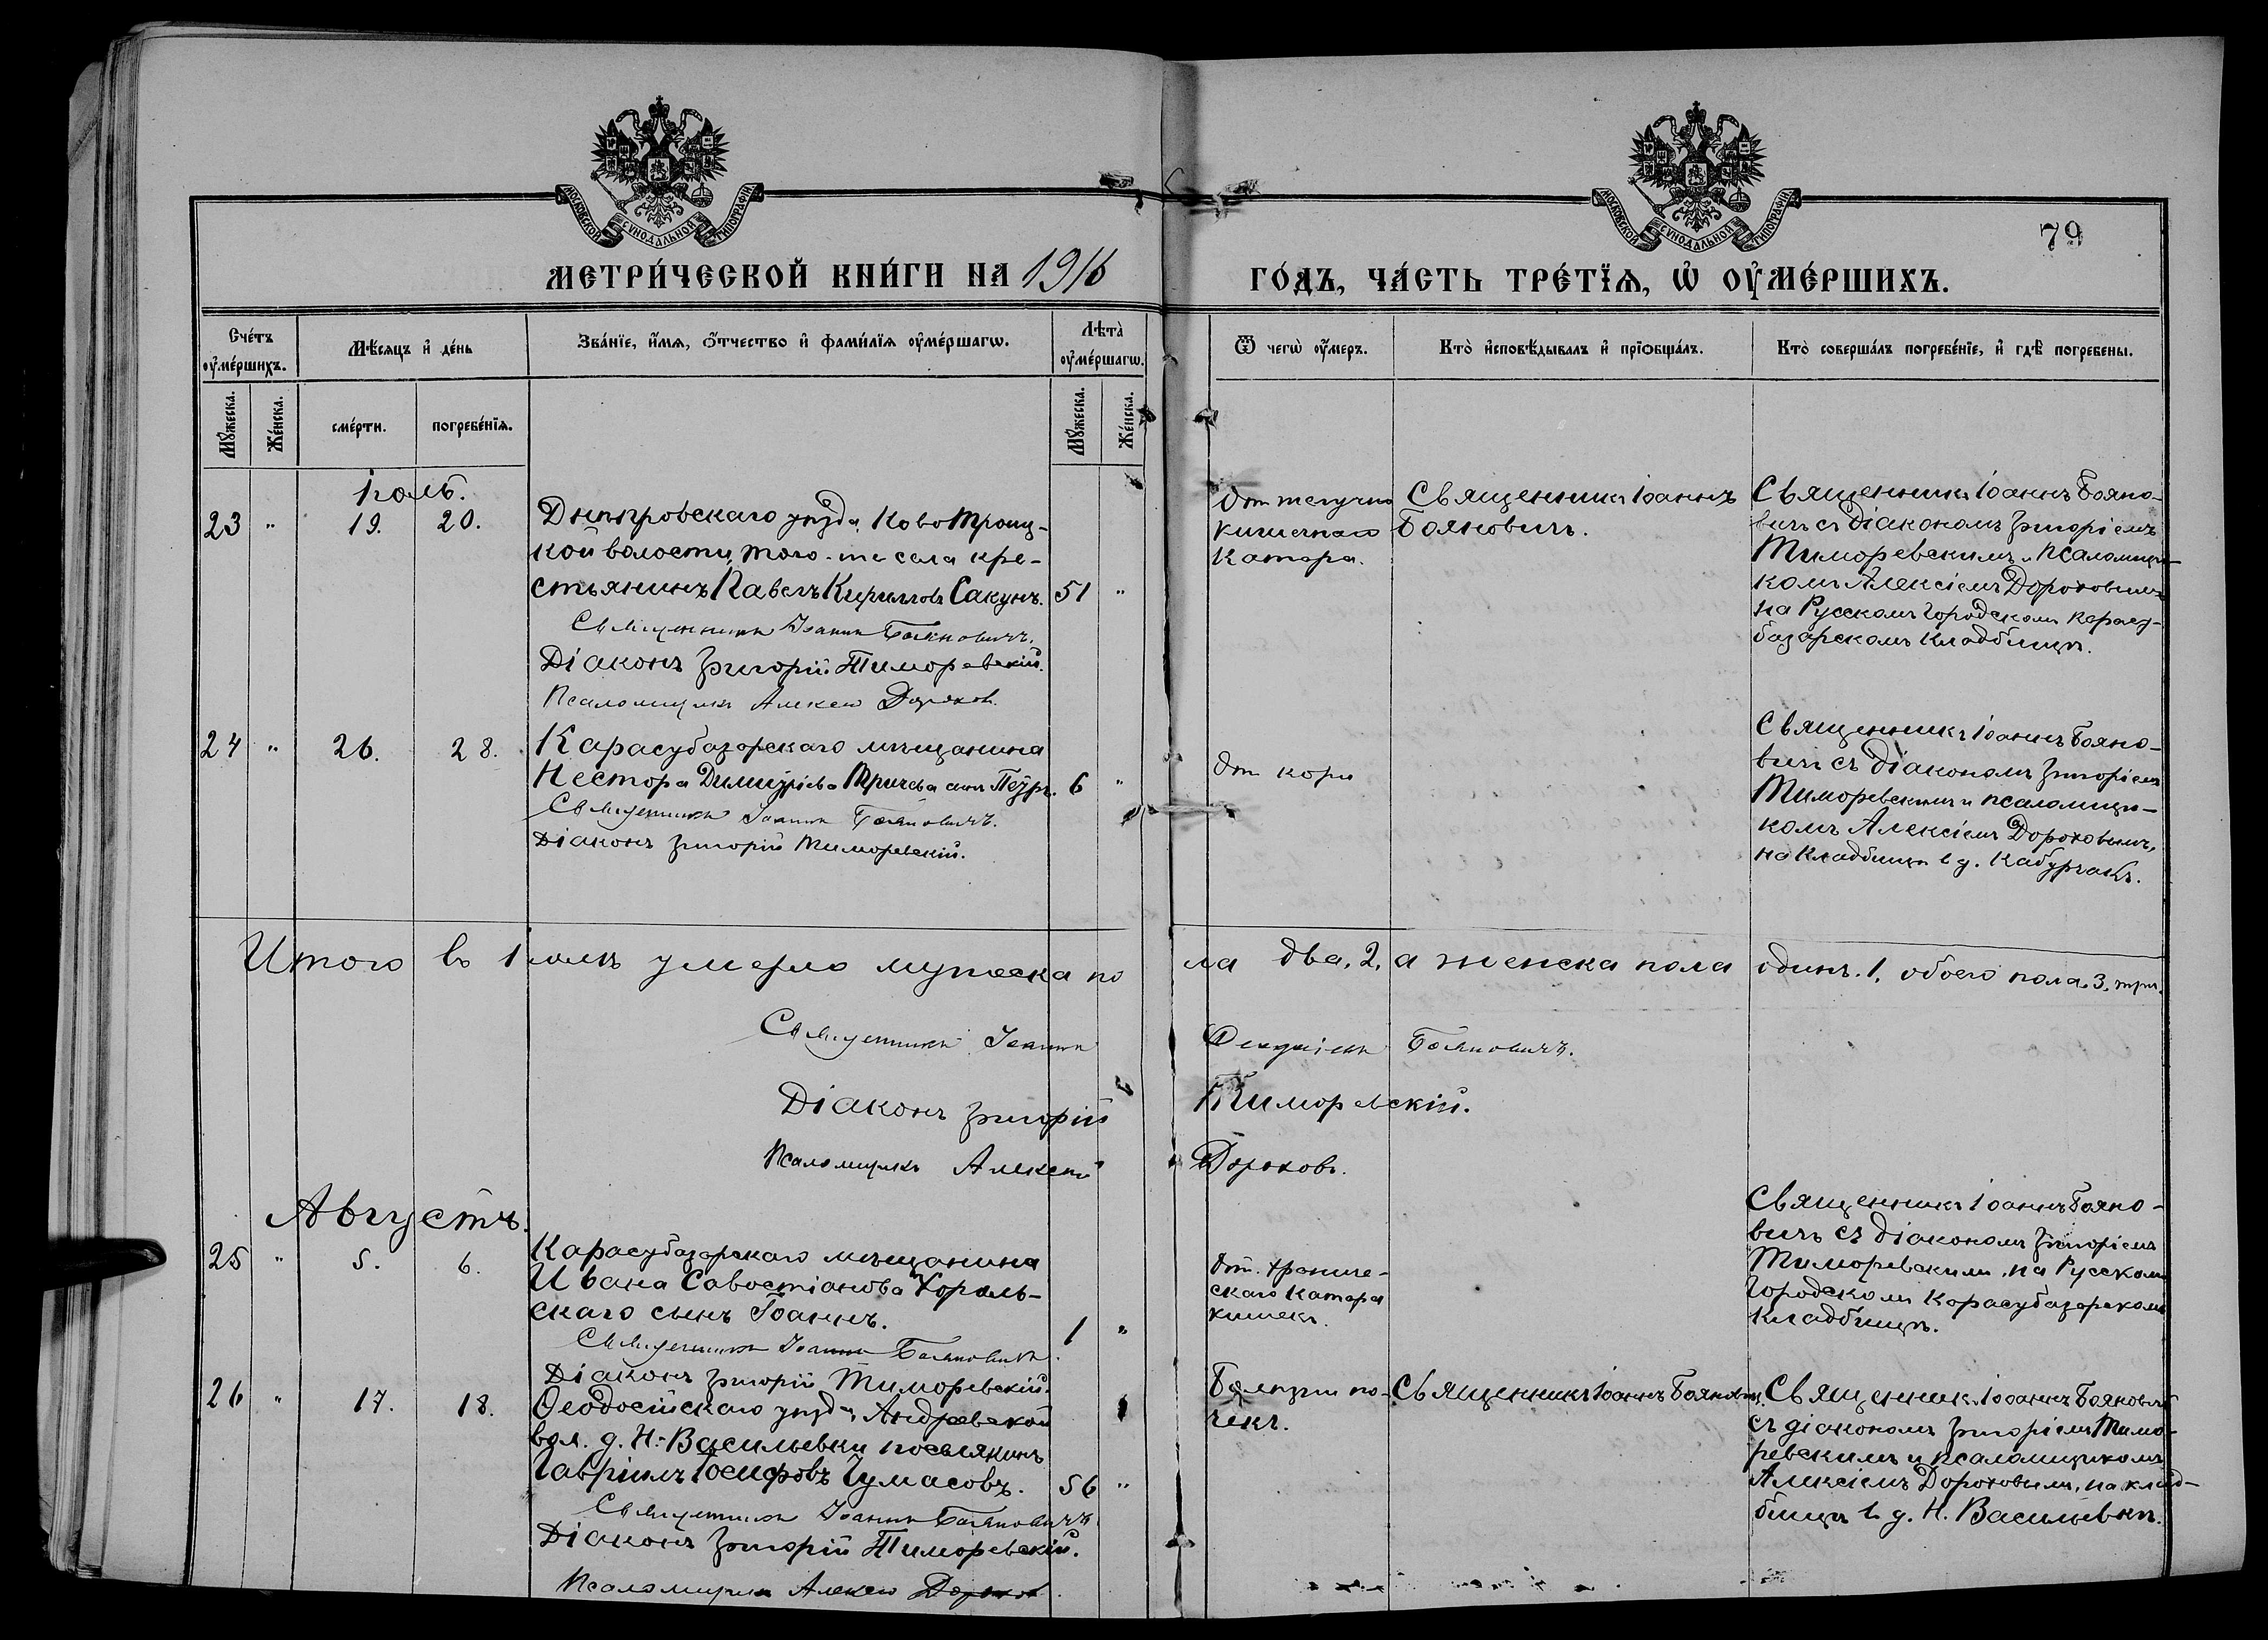 МОСКОВСКОЙ СУНОДАЛЬНОЙ ТИПОГРАФІИ
МОСКОВСКОЙ СУНОДАЛЬНОЙ ТИПОГРАФІИ
79
МЕТРИ́ЧЕСКОЙ КНИ́ГИ НА 1916
ГО́ДЪ, ЧА́СТЬ ТРЕ́ТЇѦ, Ѡ ОУ҆МЕ́РШИХЪ.
Сче́тъ оу҆ме́ршихъ.
Мѣ́сяцъ и҆ де́нь
Зва́нїе, и҆́мѧ, ѻ҆́тчество и҆ фами́лїѧ оу҆ме́ршагѡ.
Лѣ́та оу҆ме́ршагѡ.
Ѿ чегѡ̀ оу҆́меръ.
Кто̀ и҆сповѣ́дывалъ и҆ прїѡбща́лъ.
Кто̀ соверша́лъ погребе́нїе, и҆ гдѣ̀ погребены.
Мꙋ́жеска.
Же́нска.
сме́рти.
погребе́нїѧ.
Мꙋ́жеска.
Же́нска.
Іюль.
23 " 19. 20.
Днѣпровскаго уѣзда, Ново Троиц-
кой волости, того-же села кре-
стьянинъ Павелъ Кирилловъ Сакунъ. 51 "
Священникъ Іоаннъ Бояновичъ.
Діаконъ Григорій Тиморевскій.
Псаломщикъ Алексей Дорохов.
От
кишечнаго
Катара.
Священникъ Іоаннъ
Бояновичъ.
Священникъ Іоаннъ Бояно-
вичъ съ діакономъ Григоріемъ
Тиморевскимъ и псаломщи-
комъ Алексіемъ Дороховымъ
на Русскомъ Городскомъ Карасу-
базарскомъ Кладбищѣ.
24 " 26. 28.
Карасубазарскаго мѣщанина
Нестора Димитріева сынъ Петръ. 6 "
Священникъ Іоаннъ Бояновичъ.
Діаконъ Григорій Тиморевскій.
От кори
Священникъ Іоаннъ Бояно-
вичъ съ діакономъ Григоріемъ
Тиморевскимъ и псаломщи-
комъ Алексіемъ Дороховымъ,
на Кладбищѣ в д. Кабурчакъ.
Итого въ Іюлѣ умерло мужеска по ла два, 2, а женска пола одинъ. 1, обоего пола. 3, три.
Священникъ Іоаннъ Бояновичъ.
Діаконъ Григорій Тиморевскій.
Псаломщикъ Алексей Дороховъ.
Августъ.
25 " 5. 6.
Карасубазарскаго мѣщанина
Ивана Савостіанова Король-
скаго сынъ Іоаннъ. 1 "
Священникъ Іоаннъ Бояновичъ.
Діаконъ Григорій Тиморевскій.
От. хрониче-
скаго Катара
кишекъ.
Священникъ Іоаннъ Бояно-
вичъ съ діакономъ Григоріемъ
Тиморевскимъ, на Русскомъ
Городскомъ Карасубазарскомъ
Кладбищѣ.
26 " 17. 18.
Ѳеодосійскаго уѣзда, Андреевской
вол. д. Н.-Васильевки поселянинъ
Гавріилъ Іосифовъ Чумасовъ. 56 "
Священникъ Іоаннъ Бояновичъ
Діаконъ Григорій Тиморевскій.
Псаломщик Алексей Дорохов.
Болѣзни по-
чекъ.
Священникъ Іоаннъ Бояновичъ.
Священникъ Іоаннъ Бояновичъ
съ діакономъ Григоріемъ Тимо-
ревскимъ и псаломщикомъ
Алексіемъ Дороховымъ, на клад-
бищѣ в д. Н. Васильевкѣ.